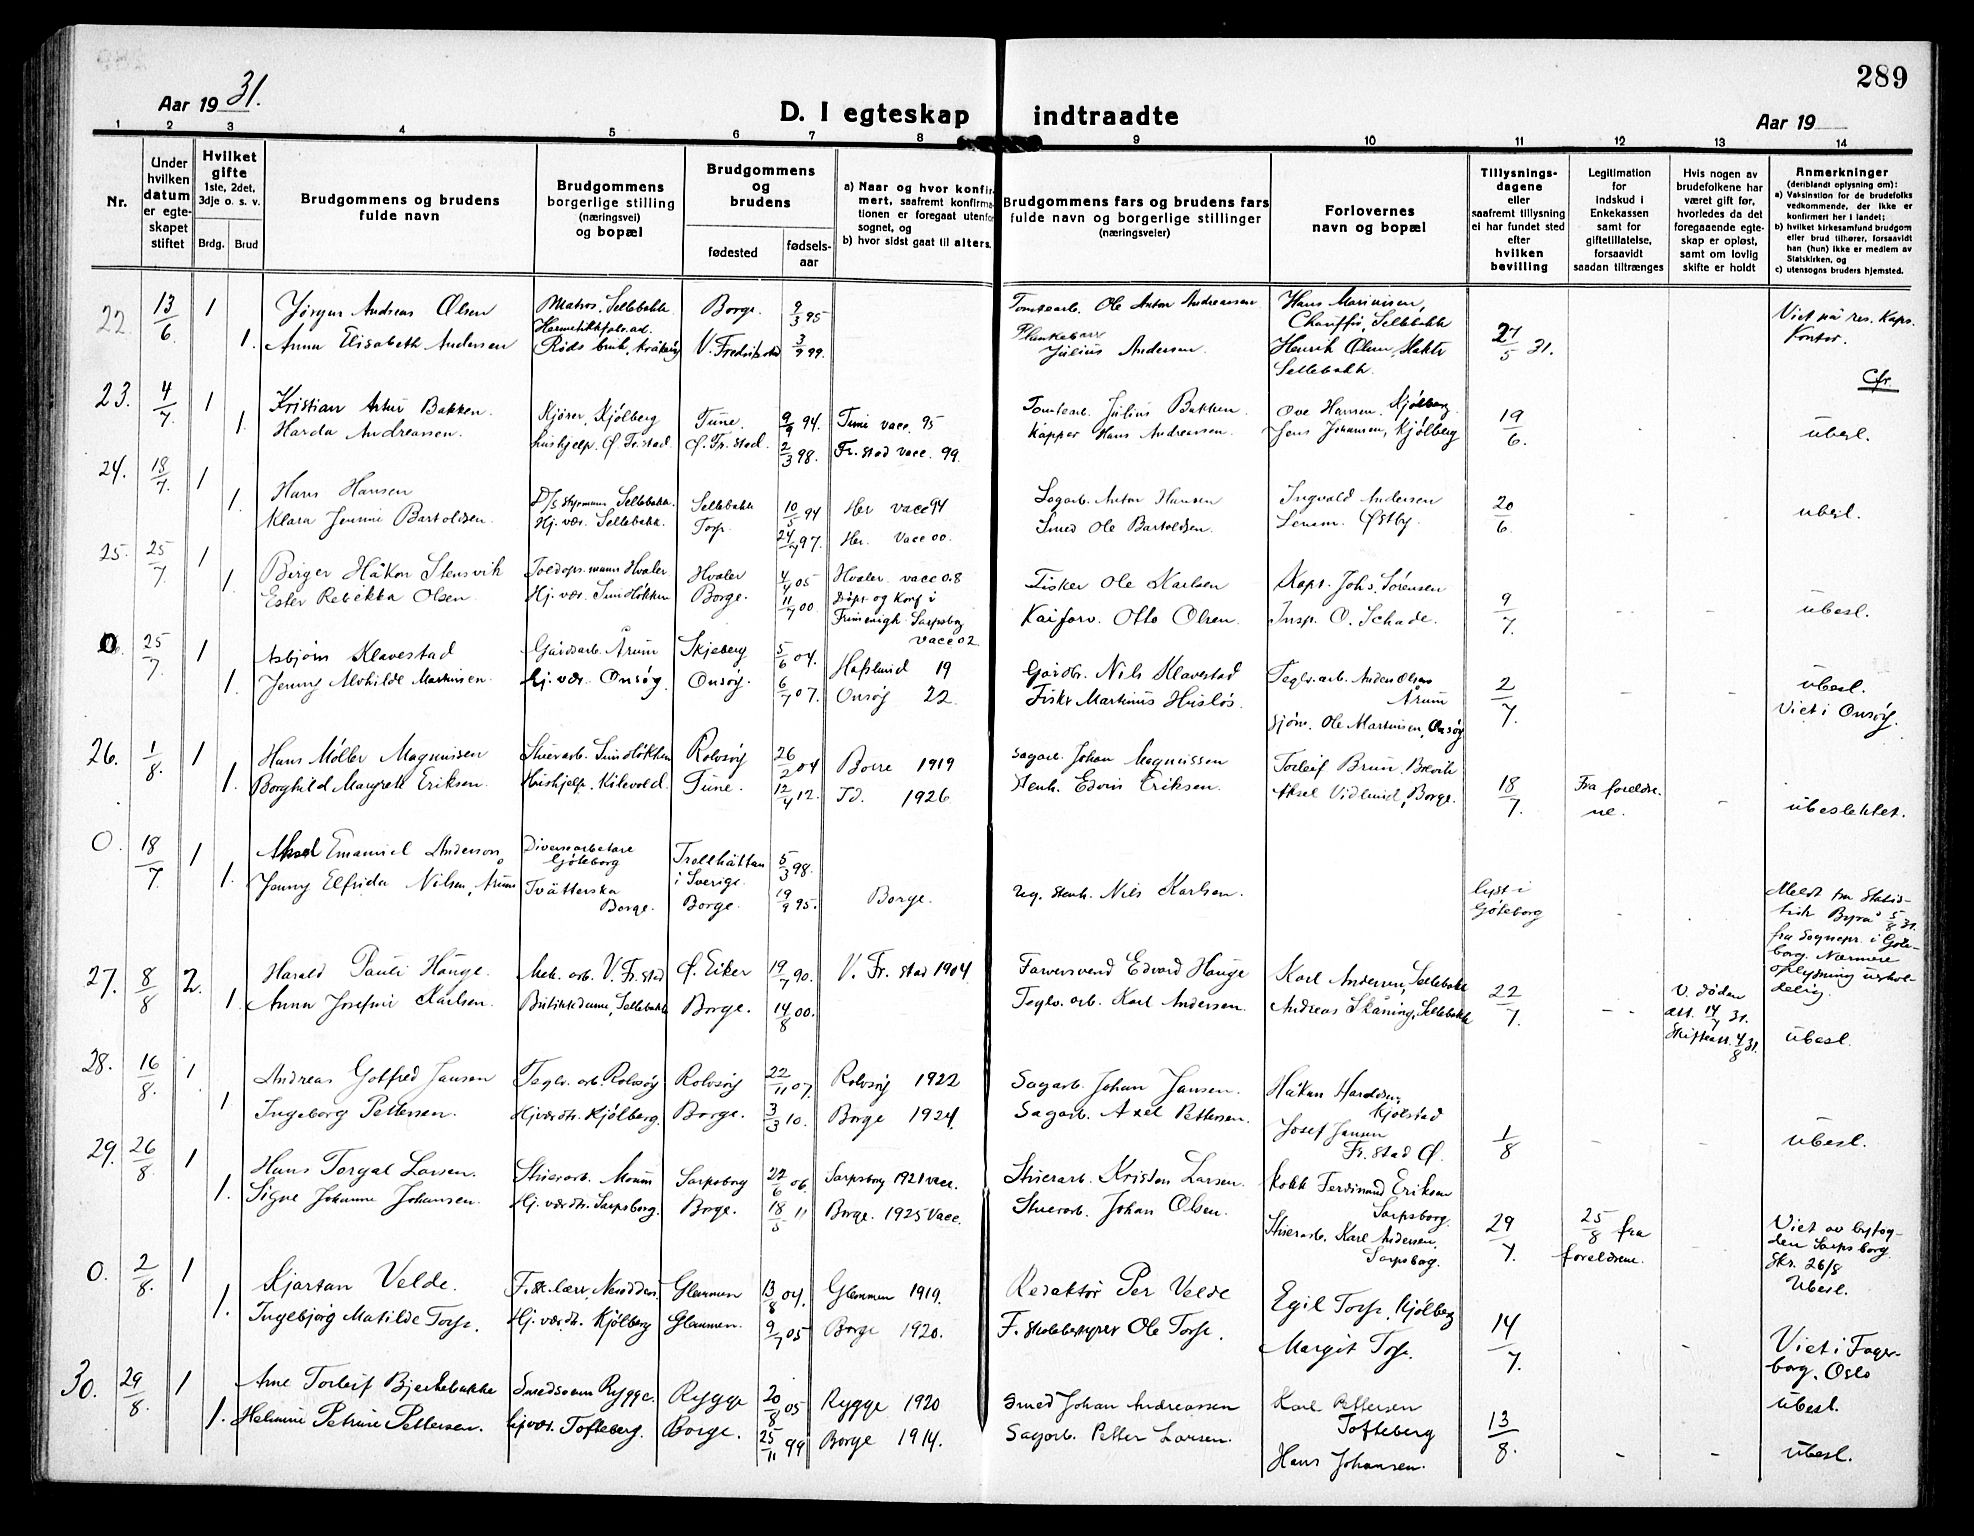 289
Aar 1931.
D. I egteskap indtraadte
Aar 19
1 2 3 4 5 6 7 8 9 10 11 12 13 14
Nr.
Under hvilken datum er egteskapet stiftet
Hvilket gifte
1ste, 2det, 3dje o. s. v.
Brdg. Brud
Brudgommens og brudens fulde navn
Brudgommens borgerlige stilling (næringsvei) og bopæl
Brudgommens og brudens
fødested fødselsaar
a) Naar og hvor konfirmert, saafremt konfirmationen er foregaat utenfor sognet, og
b) hvor sidst gaat til alters.
Brudgommens fars og brudens fars fulde navn og borgerlige stillinger (næringsveier)
Forlovernes navn og bopæl
Tillysningsdagene eller saafremt tillysning ei har fundet sted efter hvilken bevilling
Legitimation for indskud i Enkekassen samt for giftetillatelse, forsaavidt saadan tiltrænges
Hvis nogen av brudefolkene har været gift før, hvorledes da det foregaaende egteskap er opløst, samt om lovlig skifte er holdt
Anmerkninger
(deriblandt oplysning om):
a) Vaksination for de brudefolks vedkommende, der ikke er konfirmert her i landet;
b) hvilket kirkesamfund brudgom eller brud tilhører, forsaavidt han (hun) ikke er medlem av Statskirken, og
c) utensogns bruders hjemsted.
22 13/6 1 Jørgen Andreas Olsen Matros, Sellebakk Borge. 9/3 95 Tomtearb. Ole Anton Andreassen Hans Marinisen, Chauffør, Sellebakk 27/5 31. Viet på res. Kaps. Kontor.
1. Anna Elisabeth Andersen Hermetikkfabr.arb. Røds bruk, Kråkerøy V. Fredrikstad 3/9 99. Plankebærer Julius Andersen. Henrik Olsen, Sellebakk.
Cfr.
23. 4/7 1 Kristian Artur Bakken. Kjører, Kjølberg Tune. 9/9 94. Tune vacc. 95 Tomtearb. Julius Bakken. Ove Hansen, Kjølberg. 19/6. ubesl.
1. Harda Andreassen. Hushjelp. Ø. Fr.stad Ø. Fr. stad. 2/3 98. Fr. stad vacc. 99. Kapper Hans Andreassen. Jens Johansen, Kjølberg
24. 18/7. 1 Hans Hansen D/S styrmann Sellebakk. Sellebakk 10/5 94 Her vacc 94 Sagarb. Anton Hansen Ingvald Andersen 20/6. ubesl.
1. Klara Jenine Bartoldsen. Hj. vær. Sellebakk. Torp. 24/7 97. Her. Vacc 00. Smed Ole Bartoldsen. Østby.
25. 25/7 1 Birger Håkon Stensvik Toldops.mann Hvaler Hvaler 4/4 05 Hvaler. vacc 08 Fisker Ole Karlsen Kapt. Johs. Sørensen 9/7. ubesl.
1. Ester Rebekka Olsen. Hj. vær. Sundløkken Borge. 11/7 00. Døpt og Konf i Frimenigh. Sarpsborg vacc 02. Kaiforv. Otto Olsen. Insp. O. Schade.
0. 25/7 1 Asbjørn Klavestad Gårdsarb. Årum Skjeberg 5/6 04. Hafslund 19 Gårdbr. Nils Klavestad Teglv. arb. Anders Olsen Årum 2/7. ubesl. Viet i Onsøy.
1. Jenny Alvhilde Martinsen. Hj. vær. Onsøy. Onsøy. 6/7 07. Onsøy 22. Fisker Martinius Husløs. Sjøm. Ole Martinsen, Onsøy
26. 1/8. 1 Hans Møller Magnussen Stuerarb. Sundløkken Rolvsøy 26/2 04 Borre 1919 Sagarb. Johan Magnussen Torleif Bruu, Brevik 18/7. Fra foreldrene. ubeslektet.
1. Borghild Margrete Eriksen. Hushjelp. Kilevold. Tune. 12/4 12. Id. 1926 Stenh. Edvin Eriksen. Aksel Vidlund, Borge.
0. 18/7 1 Aksel Emanuel Anderson Diversearbetare Göteborg Trollhättan i Sverige. 5/3 98. lyst i Göteborg Meldt fra Statistisk Byrå 5/8 31. fra Sognepr. i Göteborg. Nærmere oplysning uteholdelig.
1. Jenny Elfrida Nilsen, Årum Tvätterska Borge. Borge. 19/9 95. Borge. Ug. stenh. Nils Karlsen.
27. 8/8 2. Harald Pauli Hauge. Mek. arb. V. Fr.stad Ø. Eiker 19/7 90. V. Fr. stad 1904 Farversvend Edvard Hauge Karl Andersen, Sellebakk 22/7. V. døden att. 14/7 31. Skifteatt. 4/8 31. ubesl.
1. Anna Josefine Karlsen. Butikkdame, Sellebakk Borge. 14/8 00. Teglv. arb. Karl Andersen. Andreas Skåning, Sellebakk
28. 16/8. 1. Andreas Gotfred Jansen Teglv. arb. Rolvsøy Rolvsøy 22/11 07. Rolvsøy 1922 Sagarb. Johan Jansen. Håkan Haraldsen, Kjølstad 1/8 ubesl.
1 Ingeborg Pettersen. Hj.værdtr. Kjølberg. Borge. 3/3 10. Borge 1924. Sagarb. Axel Pettersen. Josef Jansen Fr. stad Ø.
29. 26/8 1 Hans Torgal Larsen. Stuerarb. Moum Sarpsborg 22/6 06. Sarpsborg 1921 vacc. Stuerarb. Kristen Larsen. Kokk Ferdinand Eriksen Sarpsborg. 29/7. 25/8 fra foreldrene. Viet av byfogden Sarpsborg. Skr. 26/8 Ubesl.
1. Signe Johanne Johansen. Hj. værdtr. Sarpsborg. Borge. 18/5 11 Borge. 1925 Vacc. Stuerarb. Johan Olsen. Stuerarb. Karl Andersen, Sarpsborg.
0. 2/8. 1 Kjartan Velde. F.sk.lærer, Nesodden. Glemmen 13/8 04. Glemmen 1919. Redaktør Per Velde Egil Torp, Kjølberg 14/7. Viet i Fagerborg, Oslo ubesl.
1. Ingebjørg Matilde Torp. Hj. værdtr. Kjølberg Glemmen. 9/7 05 Borge 1920. F. skolebestyrer Ole Torp. Margit Torp.
30. 29/8. 1 Arne Torleif Bjerkebakke Smedsvenn Rygge. Rygge 20/8 05 Rygge 1920 Smed Johan Andreassen Karl Pettersen Tofteberg 13/8. ubesl.
1. Helmine Petrine Pettersen. Hj.vær. Tofteberg. Borge. 25/11 99 Borge 1914. Sagarb. Petter Larsen. Hans Johansen.